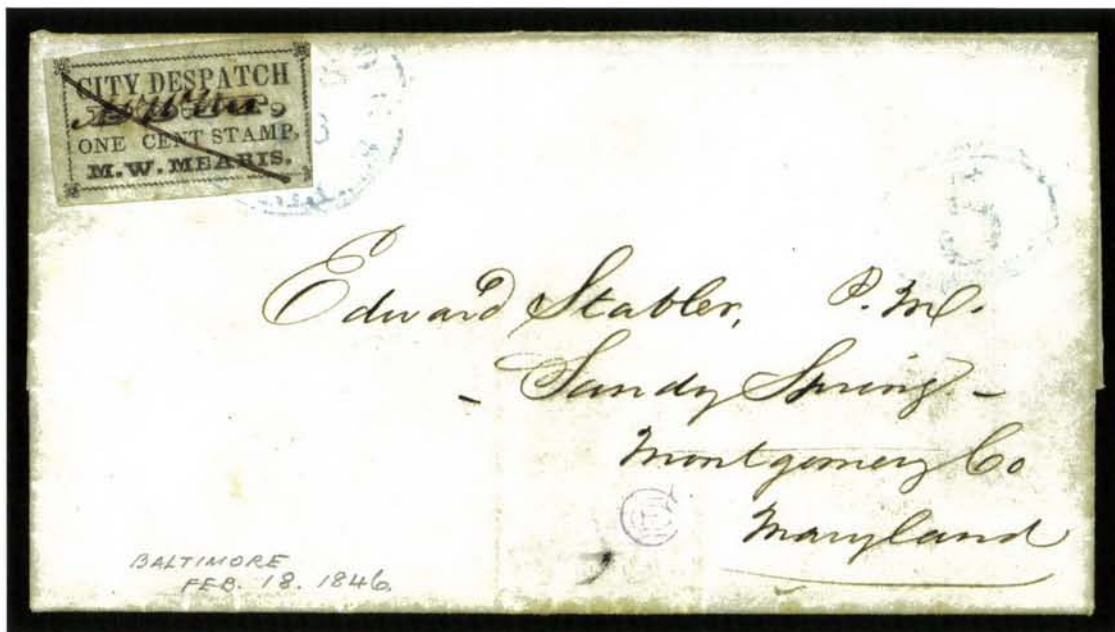 CITY DESPATCH
ONE CENT STAMP,
M.W. MEARIS.
5
Edward Stabler, P.M.
- Sandy Spring -
Montgomery Co
Maryland
BALTIMORE
FEB. 18. 1846